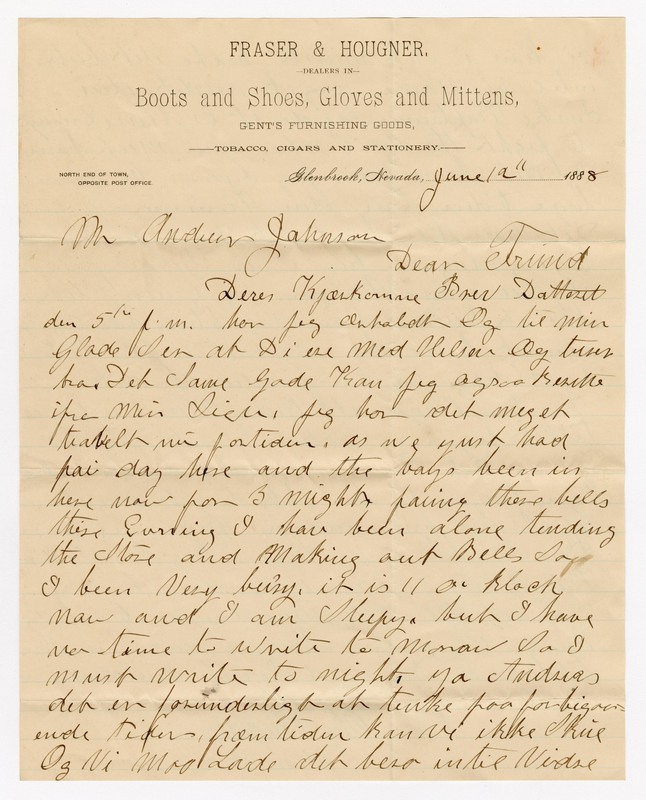 FRASER & HOUGNER,
—DEALERS IN—
Boots and Shoes, Gloves and Mittens,
GENT'S FURNISHING GOODS,
TOBACCO, CIGARS AND STATIONERY.
NORTH END OF TOWN,
OPPOSITE POST OFFICE
Glenbrook, Nevada, June 12" 1888
Mr Andrew Johnson
Dear Friend
Deres Kjærkomne Brev Datteret
den 5th f. m. har jeg Og til Min
Glade Ser at Di ere Med Helsen Og
bra. Det Same Gode Kan jeg ogsaa Berette
ifra Min Side, jeg har det meget
travelt nu fortiden, as we yust had
pai day here and the boys been in
here now for 3 Nights paiing there bells
this Evening I have been alone tending
the Store and Making out Bells So
I been Very beusy, it is 11 o Klock
Now and I am Sleepy, but I have
no time to write to Morow So I
must write to night, ya Andreas
det er forunderligt at tenke paa forbigaa-
ende tider, fræmtiden kan vi ikke Skue
Og Vi Maa Lade det bero intil Vidre